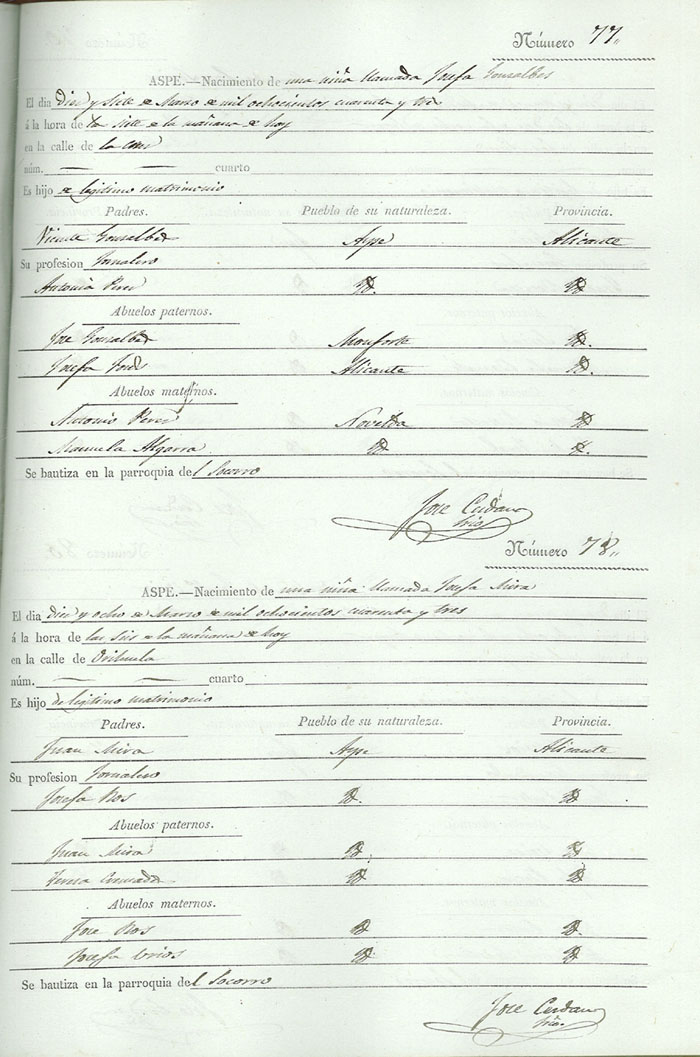 Número 77.
ASPE.—Nacimiento de una niña llamada Josefa Gonzalbes
El dia Diez y Siete de Marzo de mil ochocientos cuarenta y tres
á la hora de las siete de la mañana de hoy
en la calle de la Cruz
núm. — — cuarto
Es hijo de legitimo matrimonio
Padres. Pueblo de su naturaleza. Provincia.
Vicente Gonzalbes Aspe Alicante
Su profesion Jornalero
Antonia Perez Yd. Yd.
Abuelos paternos.
Jose Gonzalbes Monforte Yd.
Josefa Alicante Yd.
Abuelos maternos.
Antonio Perez Novelda Yd.
Manuela Algarra Yd. Yd.
Se bautiza en la parroquia del Socorro
Jose Cerdan
Número 78.
ASPE.—Nacimiento de una niña llamada Josefa Mira
El dia diez y ocho de Marzo de mil ochocientos cuarenta y tres
á la hora de las seis de la mañana de hoy
en la calle de Orihuela
núm. — — cuarto
Es hijo de legitimo matrimonio
Padres. Pueblo de su naturaleza. Provincia.
Juan Mira Aspe Alicante
Su profesion Jornalero
Josefa Ros Yd. Yd.
Abuelos paternos.
Juan Mira Yd. Yd.
Teresa Yd. Yd.
Abuelos maternos.
Jose Ros Yd. Yd.
Josefa Yd. Yd.
Se bautiza en la parroquia del Socorro
Jose Cerdan